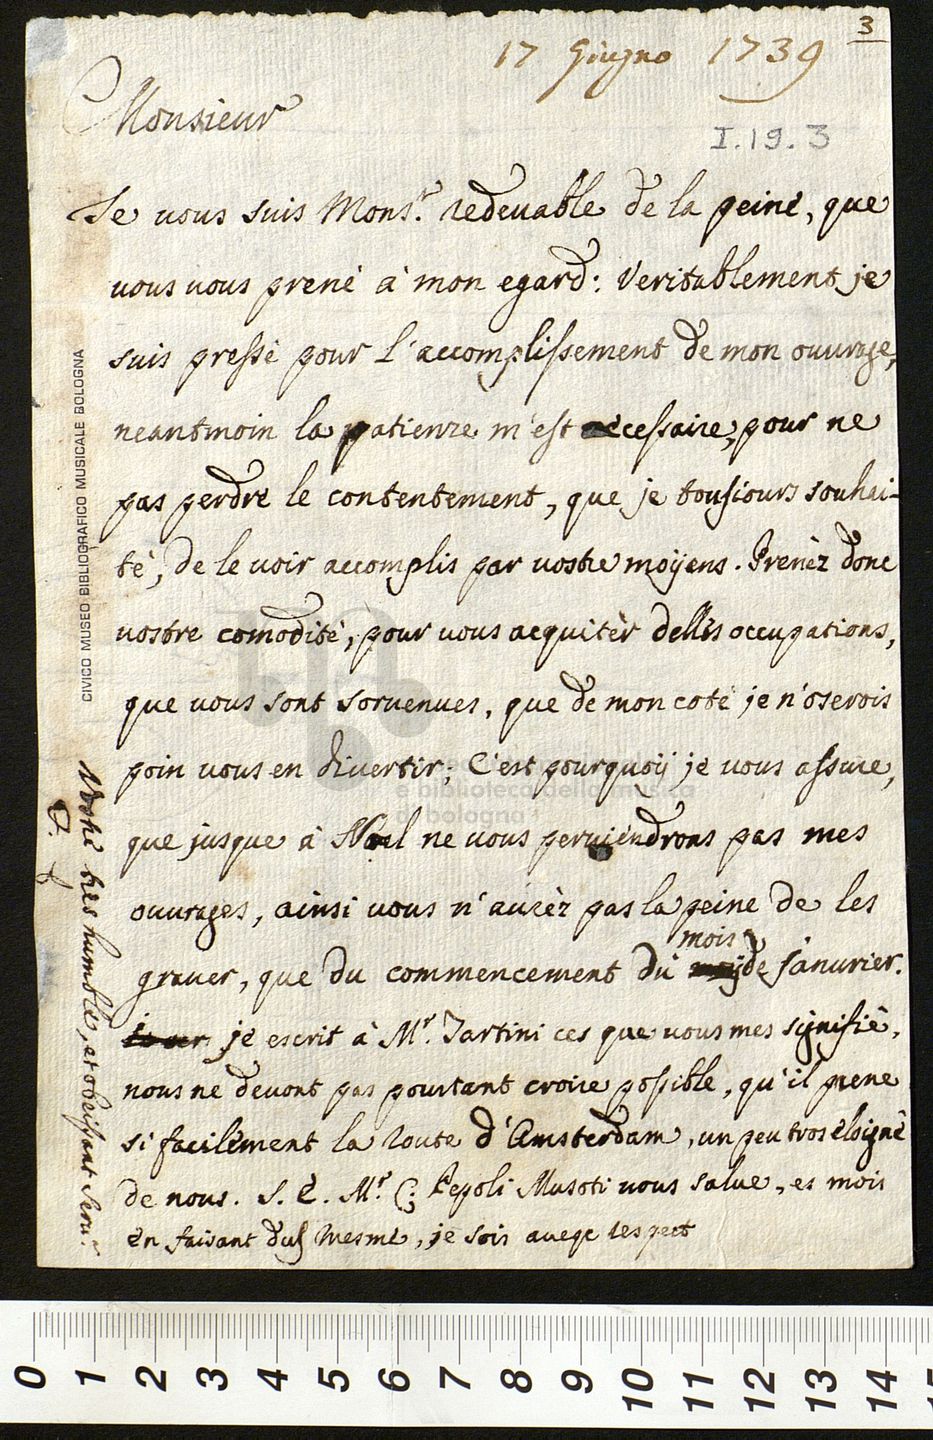 3
17 Giugno 1739
Monsieur
I.19.3
Je vous suis Mons.r redevable de la peine, que
vous vous prenè à mon egard: Veritablement je
suis pressè pour l'accomplissement de mon ouvrage,
neantmoin la patienze m'est necessaire, pour ne
pas perdre le contentement, que je tousiours souhai-
tè, de le voir accomplis par vostre moÿens. Prenèz donc
vostre comodité, pour vous acquitèr dellis occupations,
que vous sont sorvenues, que de mon coté je n'oserois
poin vous en divertir; C'est pourquoÿ je vous assure,
que jusque à Noel ne vous perviendrons pas mes
ouvrages, ainsi vous n'aurèz pas la peine de les
mois
graver, que du commencement du de Janurier.
je escrit à M.r Tartini ces que vous mes signifiè,
nous ne devont pas pourtant croire possible, qu'il prene
si facilement la route d'Amsterdam, un peu tros eloignè
de nous. S. E. M.r C: Pepoli Musoti vous salue, es mois
en faisant du mesme, je sois aveqe respect
Vostre tres humble, et obeissant Serv.r
CIVICO MUSEO BIBLIOGRAFICO MUSICALE BOLOGNA
e biblioteca della musica
di bologna
0 1 2 3 4 5 6 7 8 9 10 11 12 13 14 15